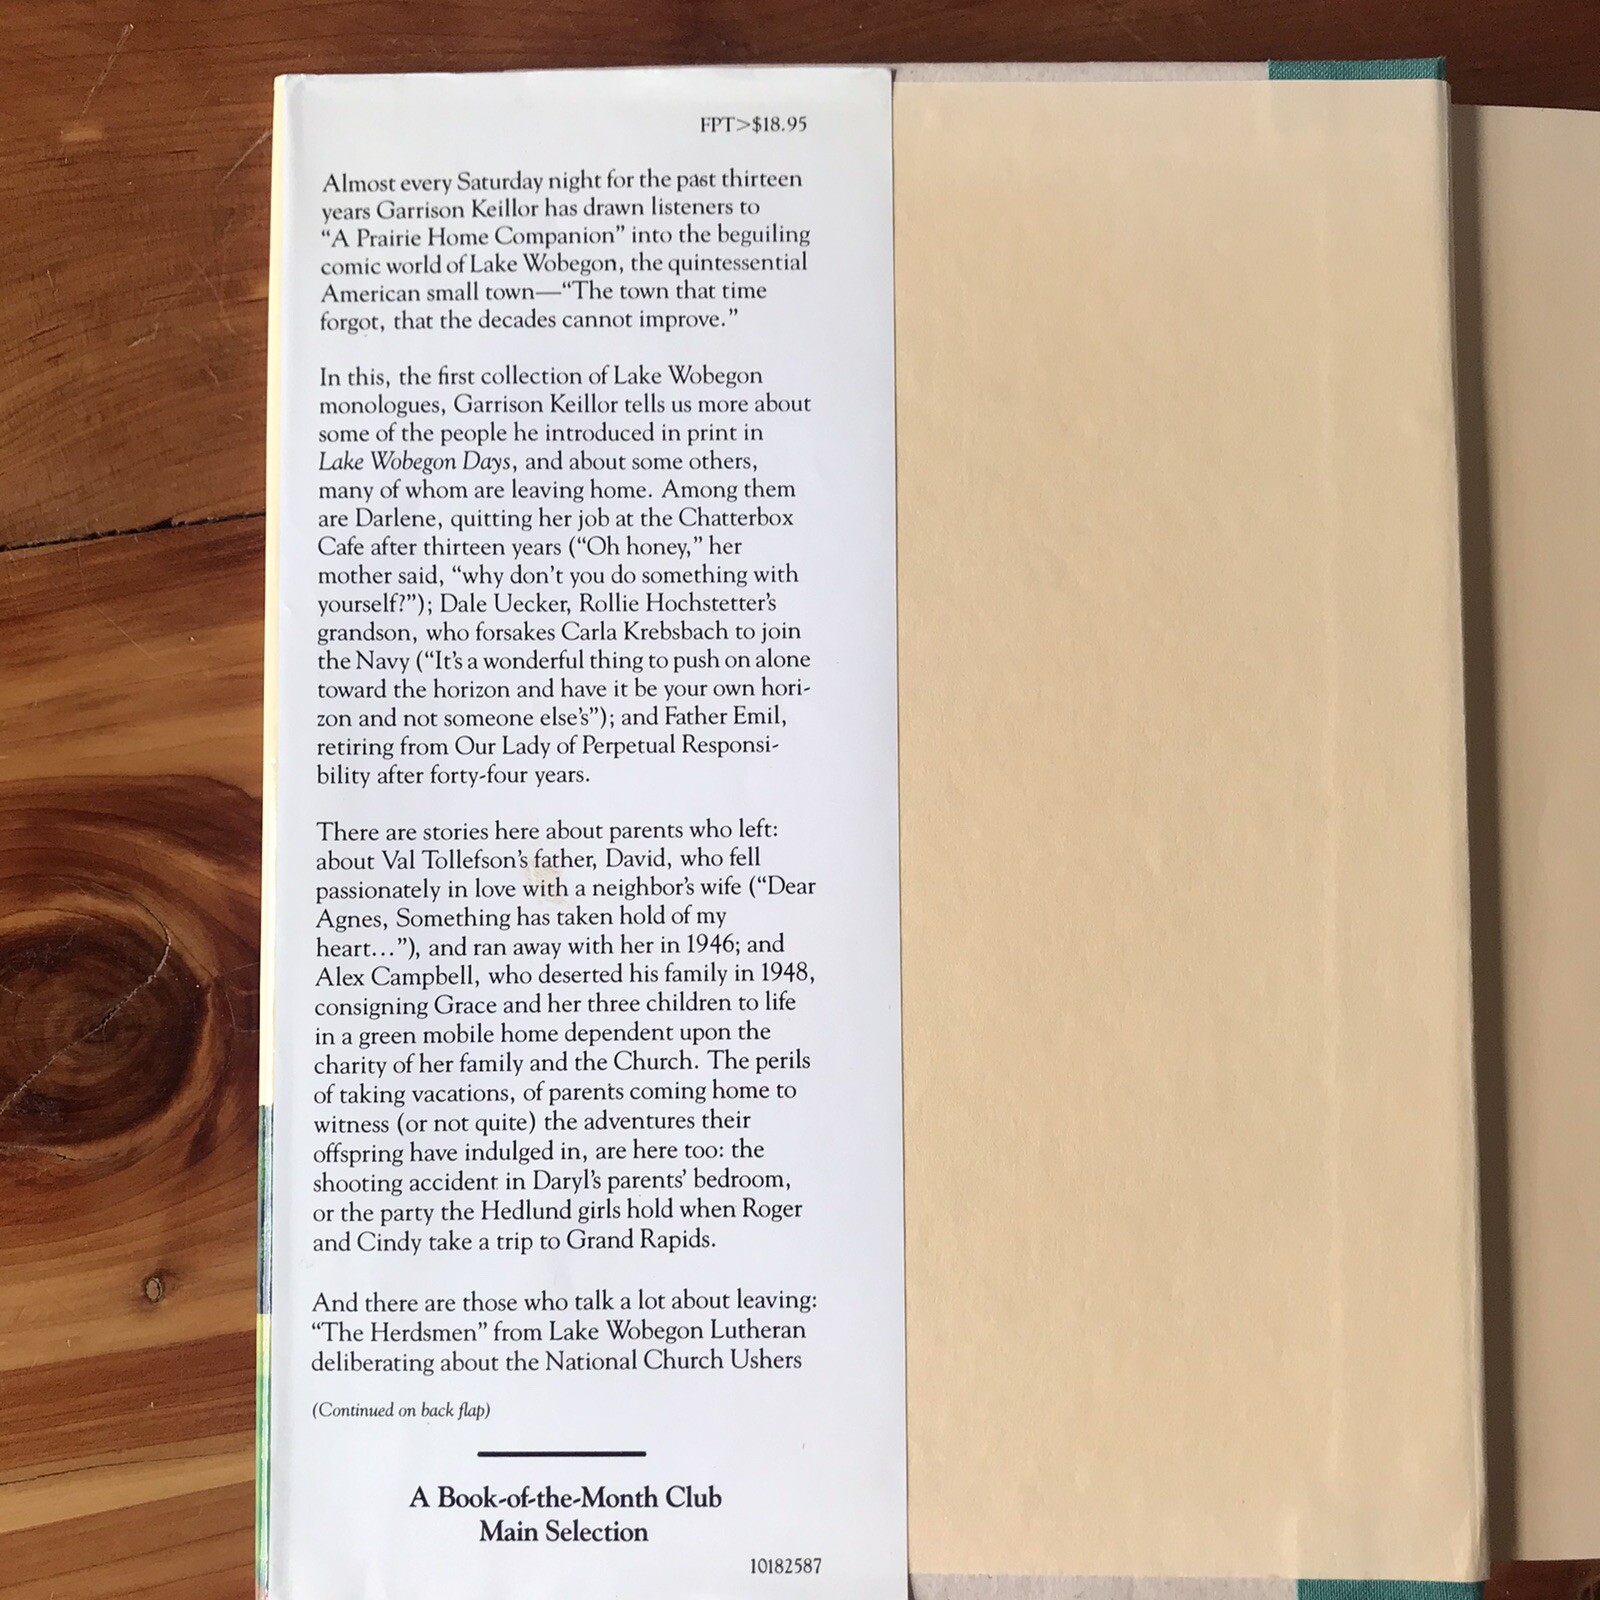 FPT>$18.95
Almost every Saturday night for the past thirteen
years Garrison Keillor has drawn listeners to
“A Prairie Home Companion” into the beguiling
comic world of Lake Wobegon, the quintessential
American small town—“The town that time
forgot, that the decades cannot improve.”
In this, the first collection of Lake Wobegon
monologues, Garrison Keillor tells us more about
some of the people he introduced in print in
Lake Wobegon Days, and about some others,
many of whom are leaving home. Among them
are Darlene, quitting her job at the Chatterbox
Cafe after thirteen years (“Oh honey,” her
mother said, “why don’t you do something with
yourself?”); Dale Uecker, Rollie Hochstetter’s
grandson, who forsakes Carla Krebsbach to join
the Navy (“It’s a wonderful thing to push on alone
toward the horizon and have it be your own hori-
zon and not someone else’s”); and Father Emil,
retiring from Our Lady of Perpetual Responsi-
bility after forty-four years.
There are stories here about parents who left:
about Val Tollefson’s father, David, who fell
passionately in love with a neighbor’s wife (“Dear
Agnes, Something has taken hold of my
heart…”), and ran away with her in 1946; and
Alex Campbell, who deserted his family in 1948,
consigning Grace and her three children to life
in a green mobile home dependent upon the
charity of her family and the Church. The perils
of taking vacations, of parents coming home to
witness (or not quite) the adventures their
offspring have indulged in, are here too: the
shooting accident in Daryl’s parents’ bedroom,
or the party the Hedlund girls hold when Roger
and Cindy take a trip to Grand Rapids.
And there are those who talk a lot about leaving:
“The Herdsmen” from Lake Wobegon Lutheran
deliberating about the National Church Ushers
(Continued on back flap)
A Book-of-the-Month Club
Main Selection
10182587